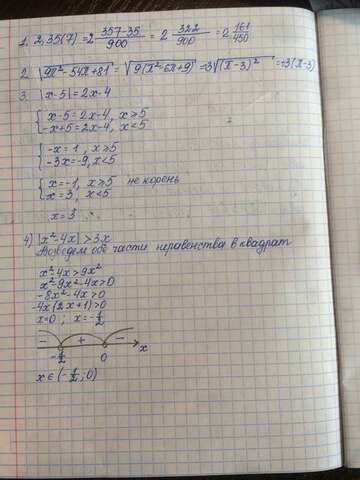 1. 2,35(7) = 2 357-35/900 = 2 322/900 = 2 161/450
2. √9x²-54x+81 = √9(x²-6x+9) = 3√(x-3)² = 3(x-3)
3. |x-5=2x-4
{ x-5=2x-4, x≥5
-x+5=2x-4, x<5
{ -x=1, x≥5
-3x=-9, x<5
{ x=-1, x≥5 не корень
x=3, x<5
x=3
4) |x²-4x|>3x
Возведем обе части неравенства в квадрат
x²-4x>9x²
x²-9x²-4x>0
-8x²-4x>0
-4x(2x+1)>0
x=0 ; x=-1/2
- + -
-1/2 0 x
x∈(-1/2;0)